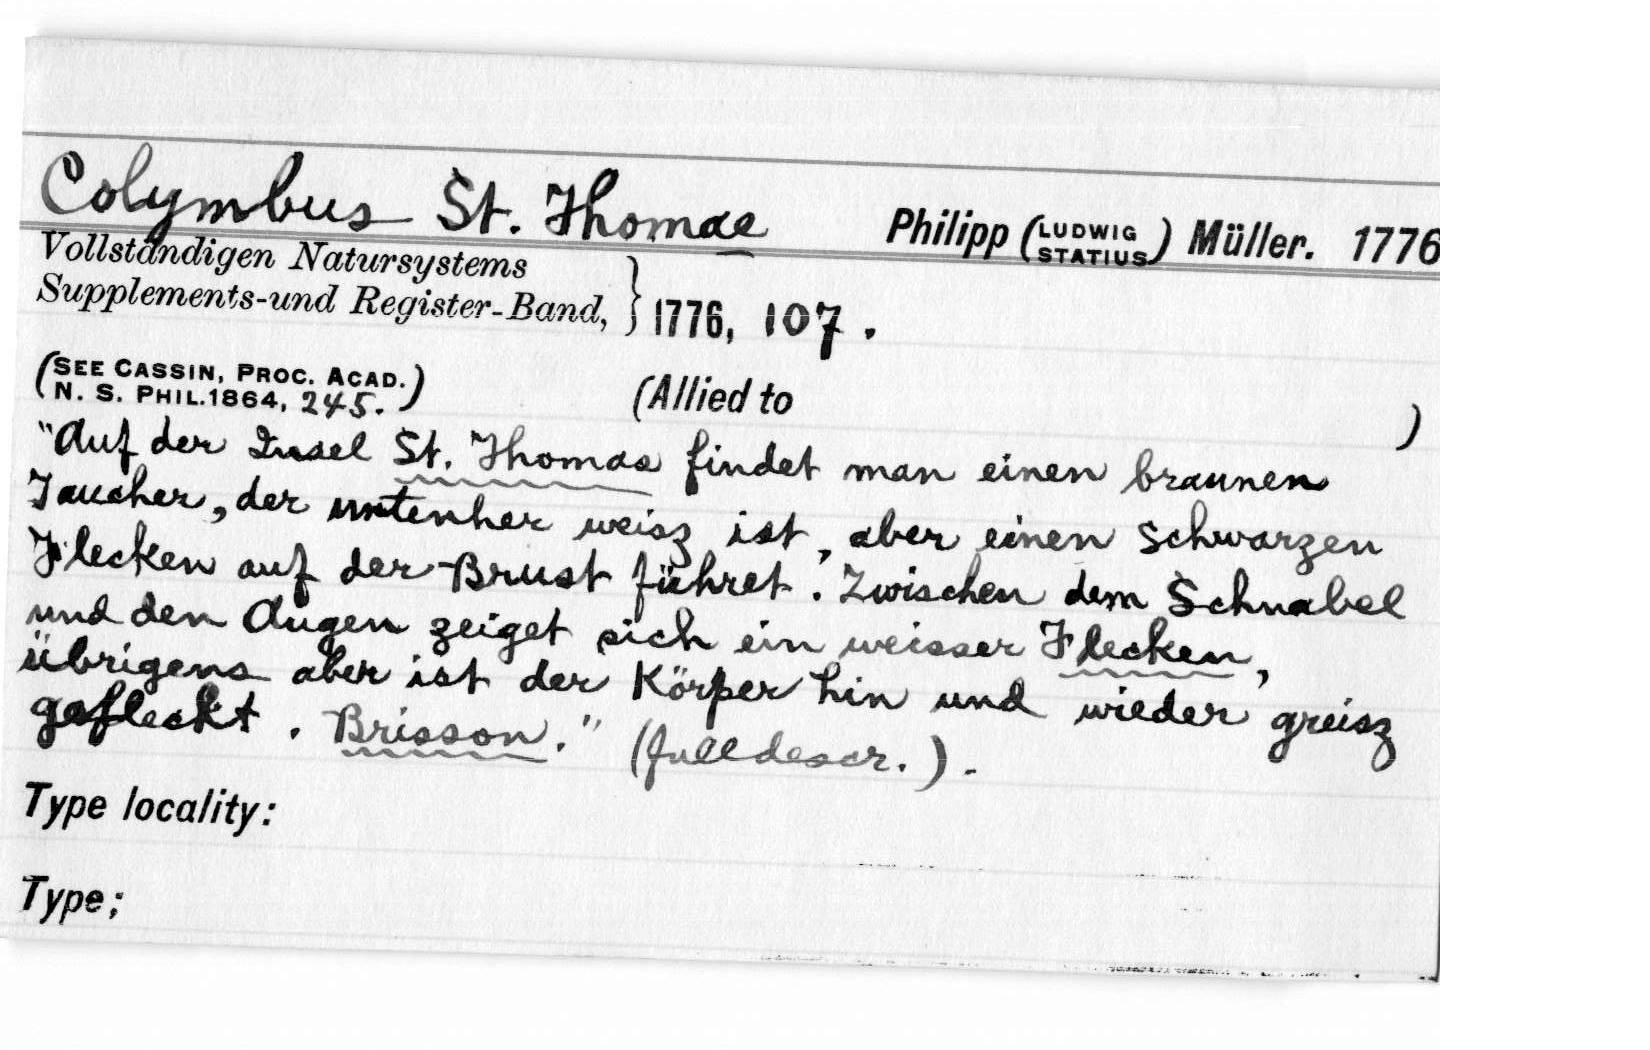 Colymbus St. Thomae Philipp (LUDWIG STATIUS) Müller. 1776
Vollständigen Natursystems
Supplements-und Register-Band, } 1776, 107.
(SEE CASSIN, PROC. ACAD.
N. S. PHIL. 1864, 245.) (Allied to )
"Auf der Insel St. Thomas findet man einen braunen
Taucher, der untenher weisz ist, aber einen schwarzen
Flecken auf der Brust führet. Zwischen dem Schnabel
und den Augen zeiget sich ein weisser Flecken,
übrigens aber ist der Körper hin und wieder greisz
gefleckt. Brisson." (full descr.).
Type locality:
Type;